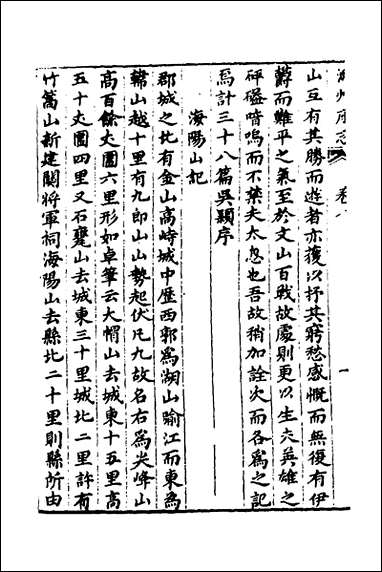 潮州府志 卷八 一
山互有其勝而遊者亦復以抒其窮愁感慨而無復有伊
蔚而難平之氣至於文山百戰故處則更以生夫英雄之
砰磕喑嗚而不禁夫太息也吾故稍加詮次而各為之記
焉計三十八篇吳穎序
海陽山記
郡城之北有金山高峙城中歷西郭為湖山喻江而東為
韓山越十里有九郎山山勢起伏凡九故名右為尖峰山
高百餘丈圍六里形如卓筆云大帽山去城東十五里高
五十丈圍四里又石甕山去城東三十里城北二里許有
竹篙山新建關將軍祠海陽山去縣北二十里則縣所由